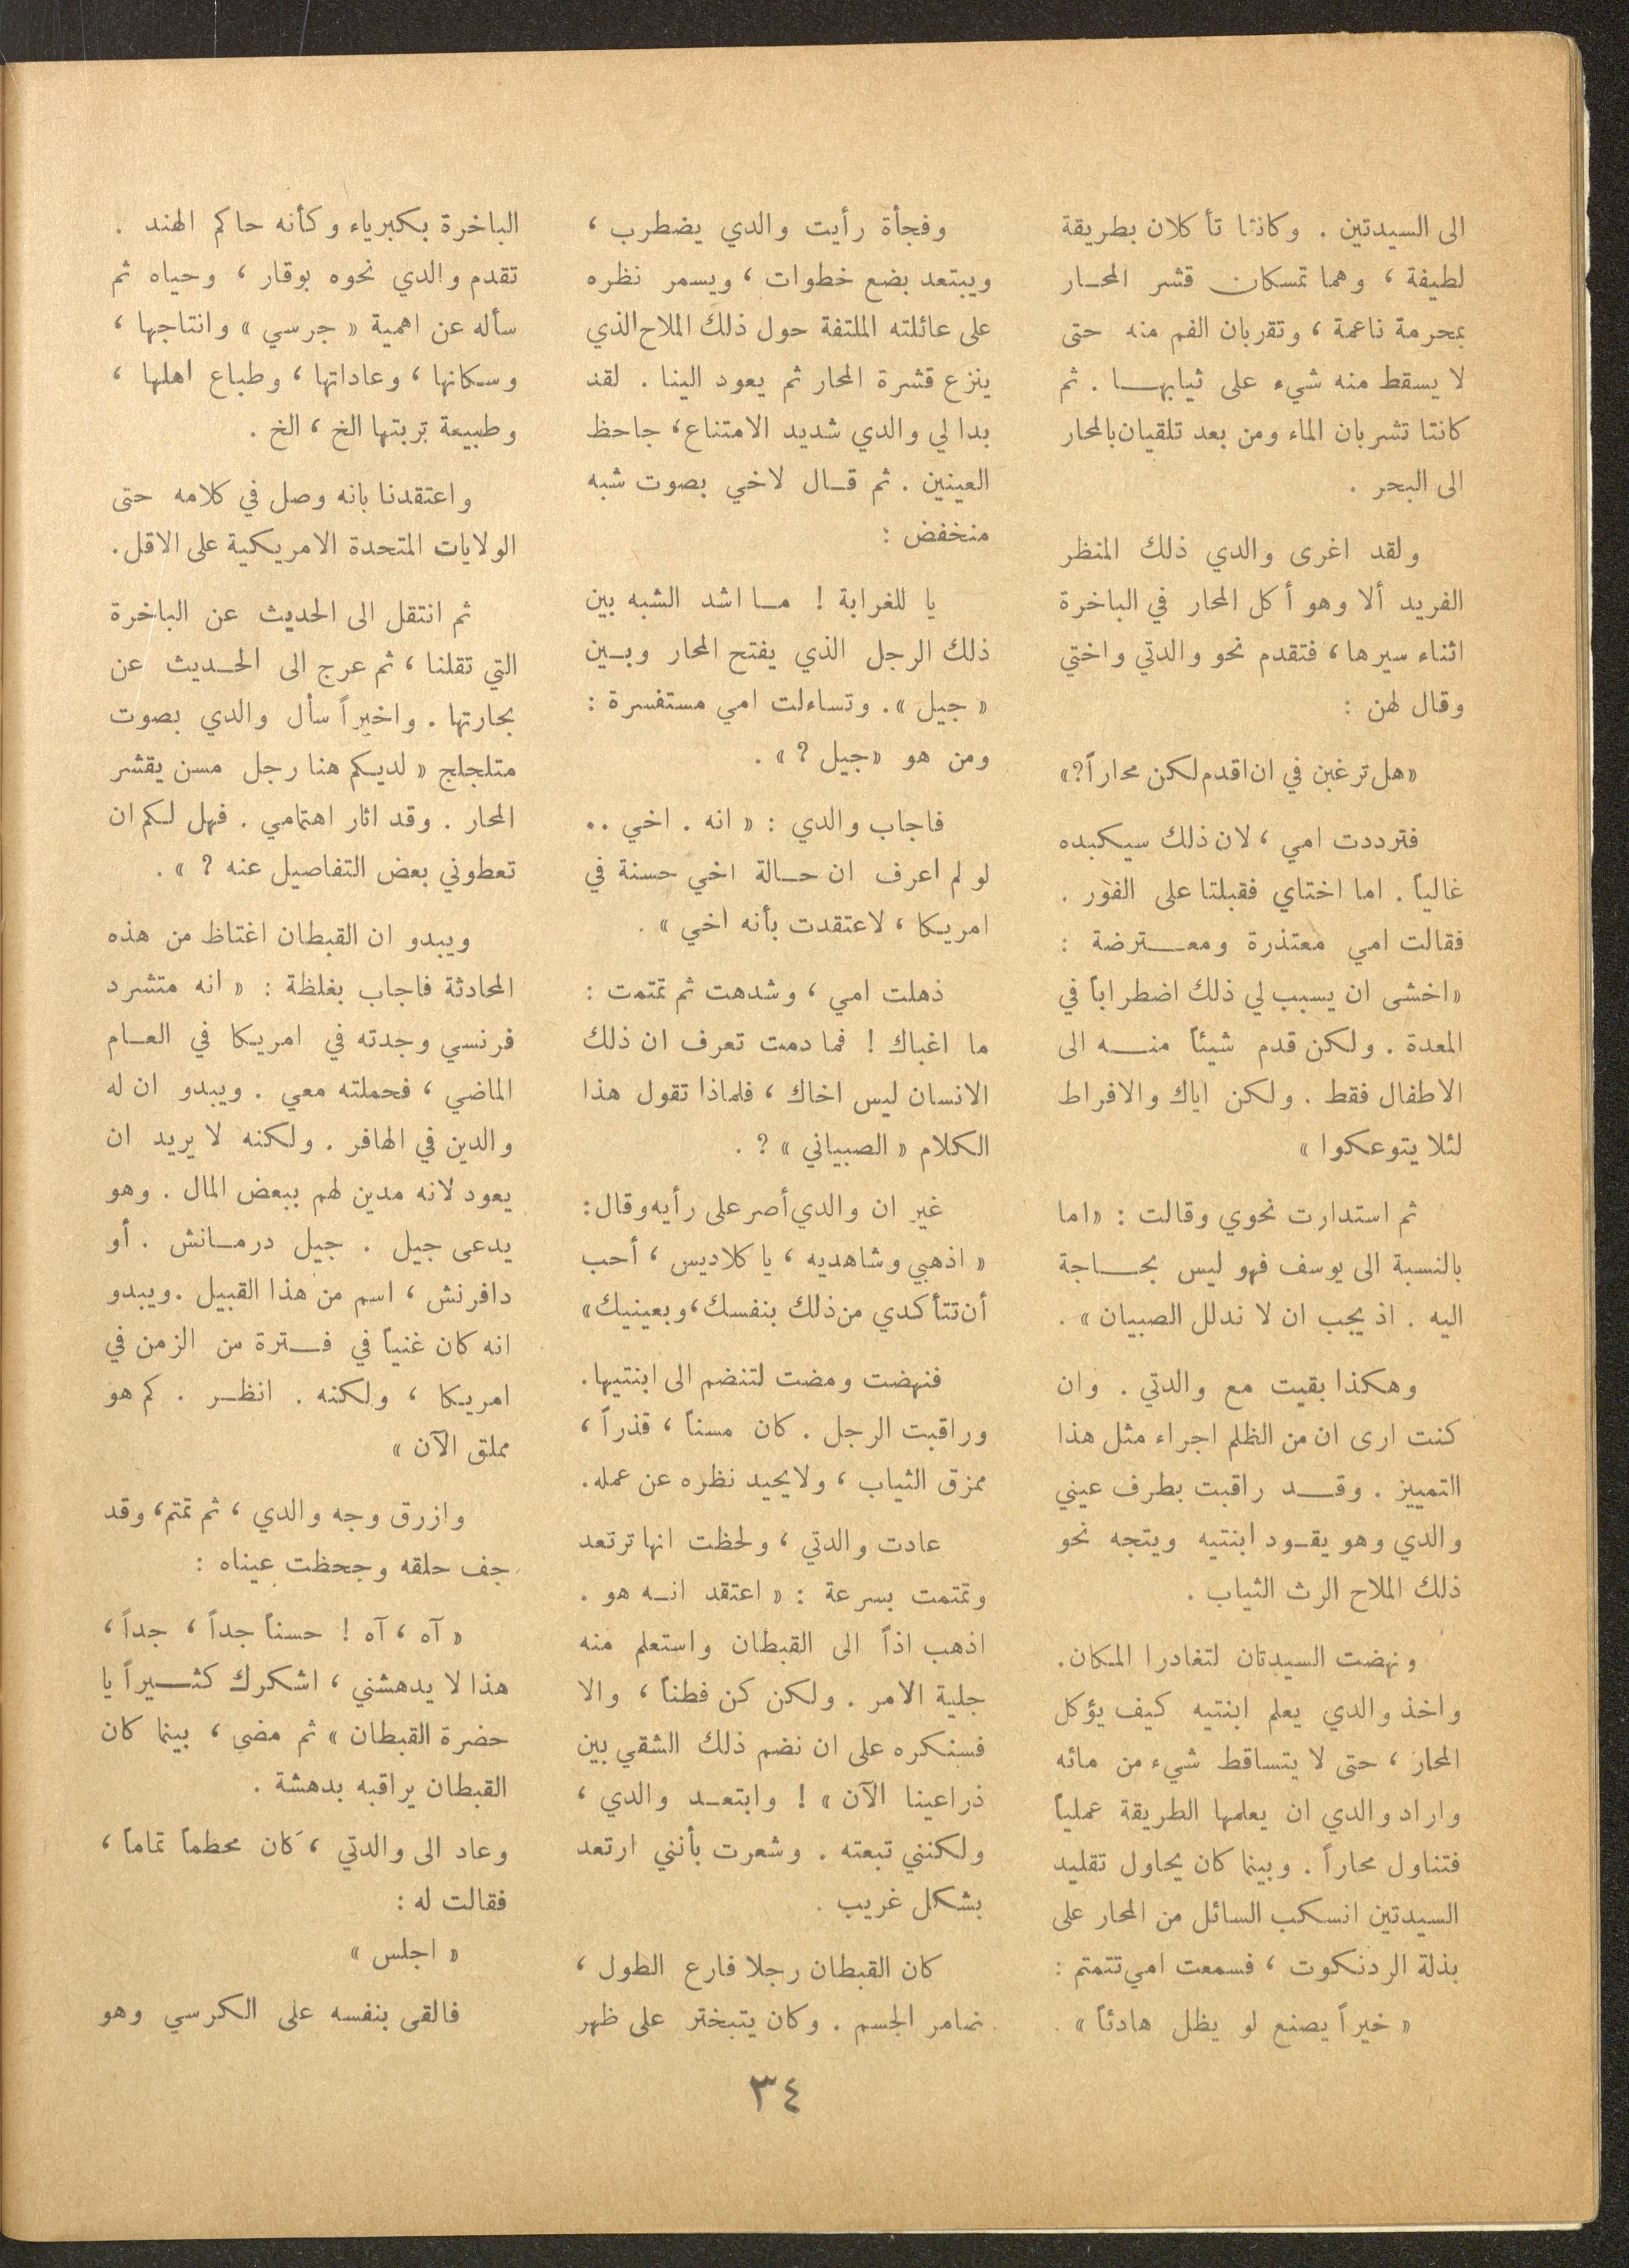 الى السيدتين . وكانتا تأكلان بطريقة
لطيفة ، وهما تمسكان قشر المحار
بمحرمة ناعمة ، وتقربان الفم منه حتى
لا يسقط منه شيء على ثيابهما . ثم
كانتا تشربان الماء ومن بعد تلقيان بالمحار
الى البحر .
ولقد اغرى والدي ذلك المنظر
الفريد ألا وهو أكل المحار في الباخرة
اثناء سيرها ، فتقدم نحو والدتي واختي
وقال لهن :
« هل ترغبن في ان اقدم لكن محاراً ? »
فترددت امي ، لان ذلك سيكبده
غالياً . اما اختاي فقبلتا على الفور .
فقالت امي معتذرة ومعترضة :
« اخشى ان يسبب لي ذلك اضطراباً في
المعدة . ولكن قدم شيئاً منه الى
الاطفال فقط . ولكن اياك والافراط
لئلا يتوعكوا »
ثم استدارت نحوي وقالت : « اما
بالنسبة الى يوسف فهو ليس بحاجة
اليه . اذ يجب ان لا ندلل الصبيان » .
وهكذا بقيت مع والدتي . وان
كنت ارى ان من الظلم اجراء مثل هذا
التمييز . وقد راقبت بطرف عيني
والدي وهو يقود ابنتيه ويتجه نحو
ذلك الملاح الرث الثياب .
ونهضت السيدتان لتغادرا المكان .
واخذ والدي يعلم ابنتيه كيف يؤكل
المحار ، حتى لا يتساقط شيء من مائه
واراد والدي ان يعلمها الطريقة عملياً
فتناول محاراً . وبينما كان يحاول تقليد
السيدتين انسكب السائل من المحار على
بذلة الردنكوت ، فسمعت امي تتمتم :
« خيراً يصنع لو يظل هادئاً » .
وفجأة رأيت والدي يضطرب ،
ويبتعد بضع خطوات ، ويسمر نظره
على عائلته الملتفة حول ذلك الملاح الذي
ينزع قشرة المحار ثم يعود الينا . لقد
بدا لي والدي شديد الامتناع ، جاحظ
العينين . ثم قال لاخي بصوت شبه
منخفض :
يا للغرابة ! ما اشد الشبه بين
ذلك الرجل الذي يفتح المحار وبين
« جيل » . وتساءلت امي مستفسرة :
ومن هو « جيل ? » .
فاجاب والدي : « انه . اخي ..
لو لم اعرف ان حالة اخي حسنة في
امريكا ، لاعتقدت بأنه اخي » .
ذهلت امي ، وشدهت ثم تمتمت :
ما اغباك ! فما دمت تعرف ان ذلك
الانسان ليس اخاك ، فلماذا تقول هذا
الكلام « الصبياني » ? .
غير ان والدي أصر على رأيه وقال :
« اذهبي وشاهديه ، يا كلاديس ، أحب
أن تتأكدي من ذلك بنفسك ، وبعينيك »
فنهضت ومضت لتنضم الى ابنتيها .
وراقبت الرجل . كان مسناً ، قذراً ،
ممزق الثياب ، ولا يحيد نظره عن عمله .
عادت والدتي ، ولحظت انها ترتعد
وتمتمت بسرعة : « اعتقد انه هو .
اذهب اذاً الى القبطان واستعلم منه
جلية الامر . ولكن كن فطناً ، والا
فسنكره على ان نضم ذلك الشقي بين
ذراعينا الآن » ! وابتعد والدي ،
ولكنني تبعته . وشعرت بأنني ارتعد
بشكل غريب .
كان القبطان رجلا فارع الطول ،
ضامر الجسم . وكان يتبختر على ظهر
الباخرة بكبرياء وكأنه حاكم الهند .
تقدم والدي نحوه بوقار ، وحياه ثم
سأله عن اهمية « جرسي » وانتاجها ،
وسكانها ، وعاداتها ، وطباع اهلها ،
وطبيعة تربتها الخ ، الخ .
واعتقدنا بانه وصل في كلامه حتى
الولايات المتحدة الامريكية على الاقل .
ثم انتقل الى الحديث عن الباخرة
التي تقلنا ، ثم عرج الى الحديث عن
بحارتها . واخيراً سأل والدي بصوت
متلجلج « لديكم هنا رجل مسن يقشر
المحار . وقد اثار اهتمامي . فهل لكم ان
تعطوني بعض التفاصيل عنه ? » .
ويبدو ان القبطان اغتاظ من هذه
المحادثة فاجاب بغلظة : « انه متشرد
فرنسي وجدته في امريكا في العام
الماضي ، فحملته معي . ويبدو ان له
والدين في الهافر . ولكنه لا يريد ان
يعود لانه مدين لهم ببعض المال . وهو
يدعى جيل . جيل درمانش . أو
دافرنش ، اسم من هذا القبيل . ويبدو
انه كان غنياً في فترة من الزمن في
امريكا ، ولكنه . انظر . كم هو
مملق الآن »
وازرق وجه والدي ، ثم تمتم ، وقد
جف حلقه وجحظت عيناه :
« آه ، آه ! حسناً جداً ، جداً ،
هذا لا يدهشني ، اشكرك كثيراً يا
حضرة القبطان » ثم مضى ، بينما كان
القبطان يراقبه بدهشة .
وعاد الى والدتي ، كان محطماً تماماً ،
فقالت له :
« اجلس »
فالقى بنفسه على الكرسي وهو
٣٤